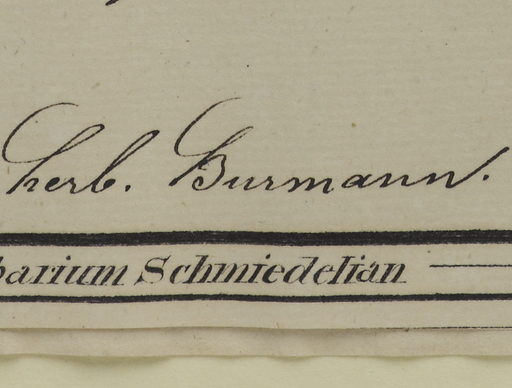 herb. Burmann.
barium Schmiedelian